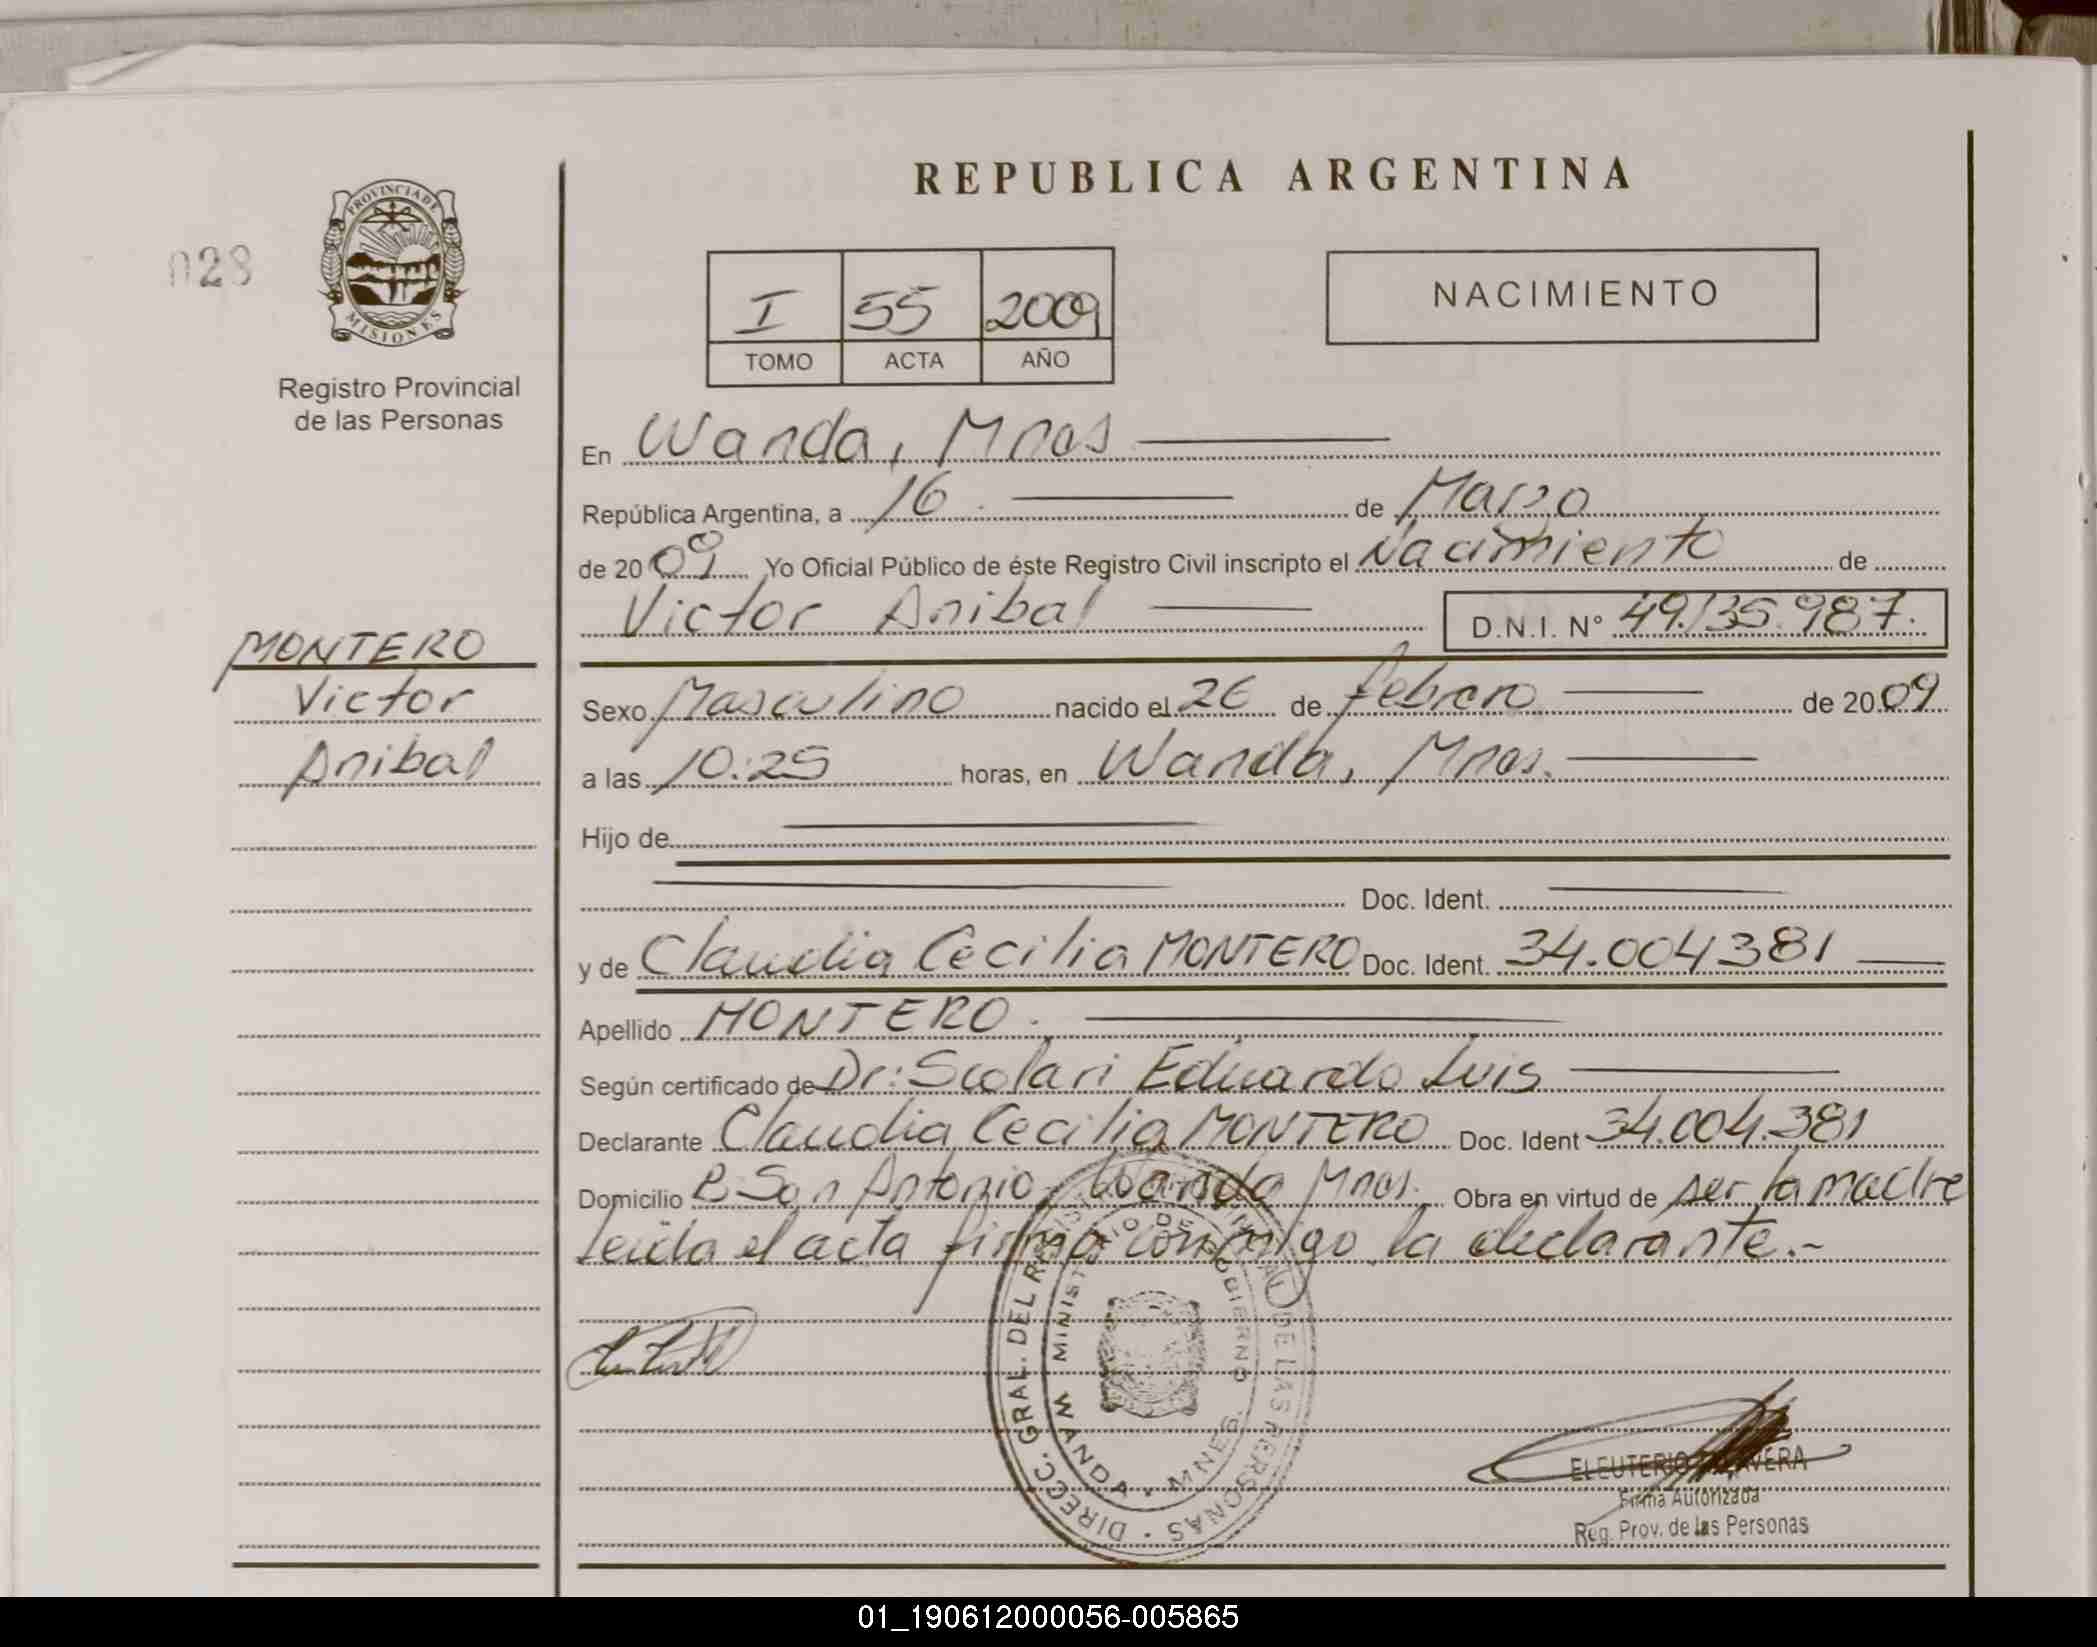 REPUBLICA ARGENTINA
028
PROVINCIA DE
MISIONES
Registro Provincial
de las Personas
I 55 2009
TOMO ACTA AÑO
NACIMIENTO
En Wanda, Mnes
República Argentina, a 16 de Marzo
de 2009 Yo Oficial Público de éste Registro Civil inscripto el Nacimiento de
Victor Anibal D.N.I. N° 49.135.987.
MONTERO
Victor
Anibal
Sexo Masculino nacido el 26 de febrero de 2009
a las 10:25 horas, en Wanda, Mnes.
Hijo de
Doc. Ident.
y de Claudia Cecilia MONTERO Doc. Ident. 34.004381
Apellido MONTERO.
Según certificado de Dr: Scolari Eduardo Luis
Declarante Claudia Cecilia MONTERO Doc. Ident 34.004.381
Domicilio B. San Antonio, Wanda Mnes. Obra en virtud de ser la madre
Leida el acta firma conmigo la declarante.-
DIRECC. GRAL. DEL REGISTRO PROVINCIAL DE LAS PERSONAS
MINISTERIO DE GOBIERNO
WANDA - MNES.
ELEUTERIO
Firma Autorizada
Reg. Prov. de las Personas
01_190612000056-005865